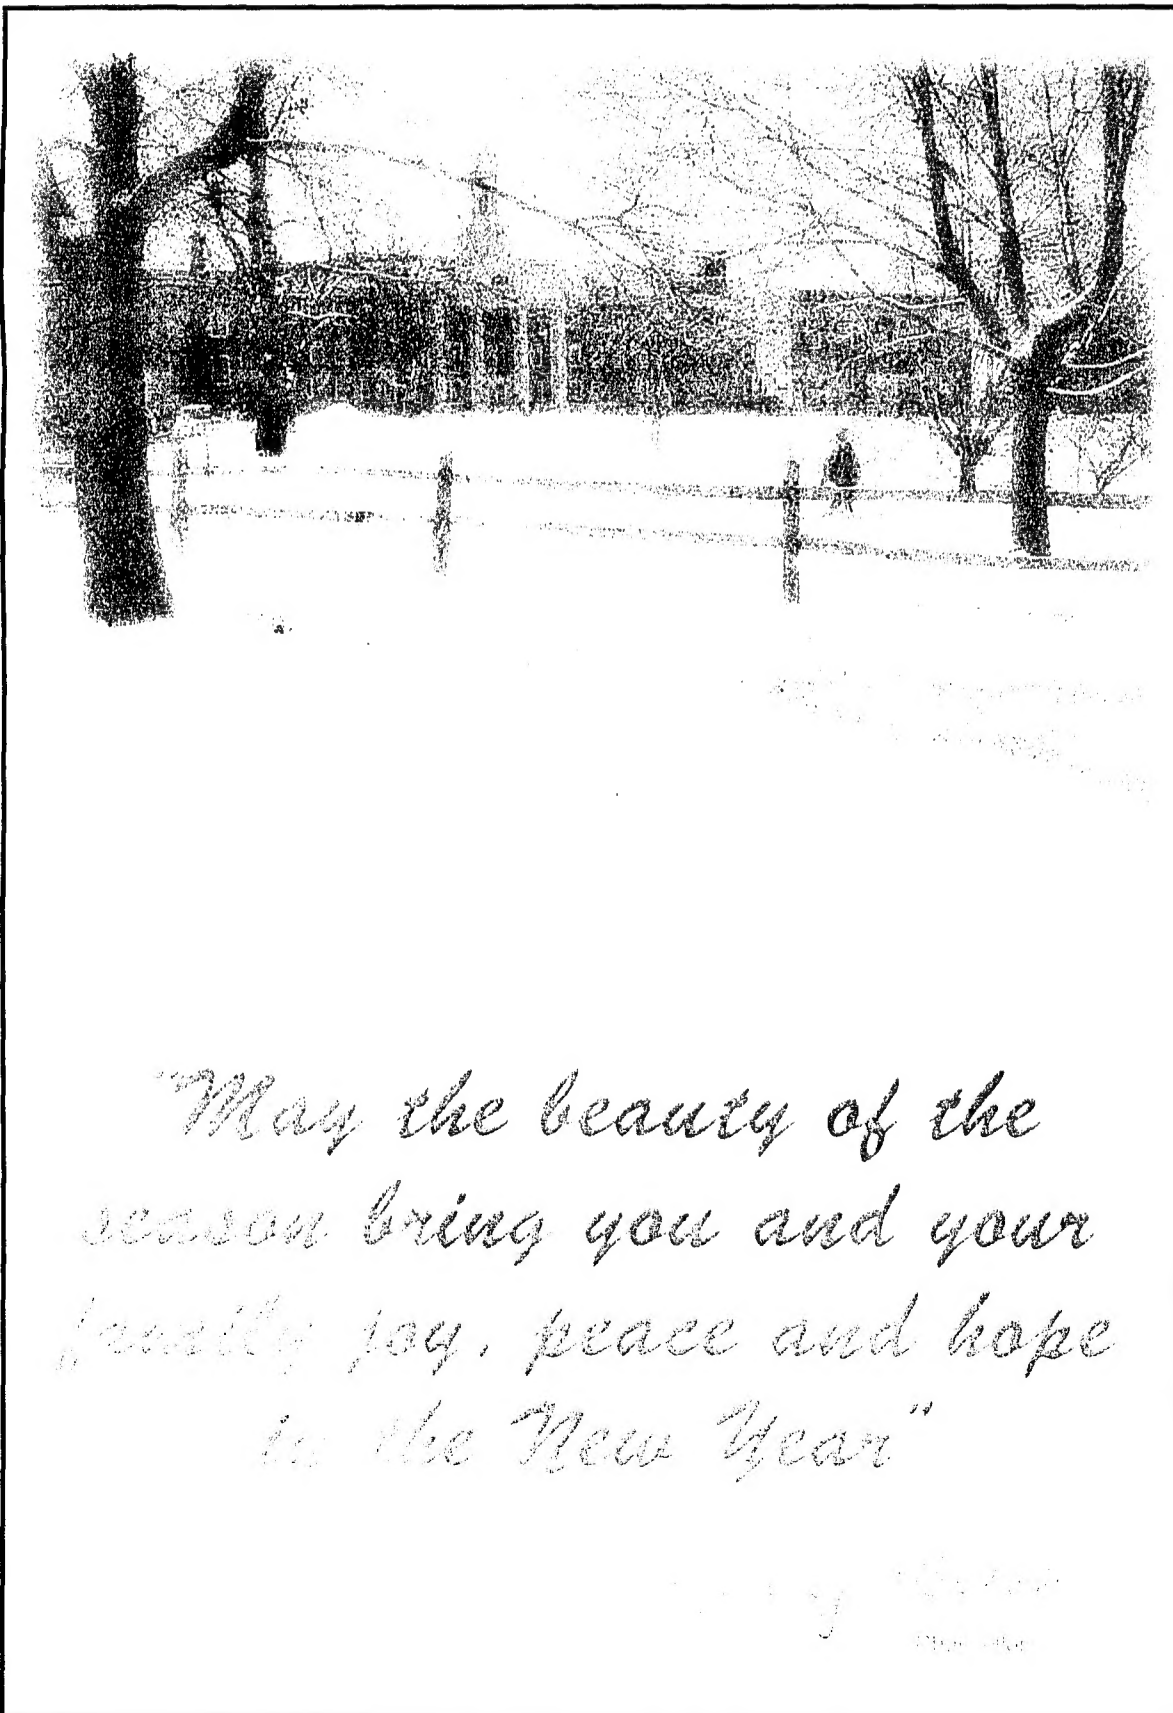 "May the beauty of the
season bring you and your
family joy, peace and hope
in the New Year"